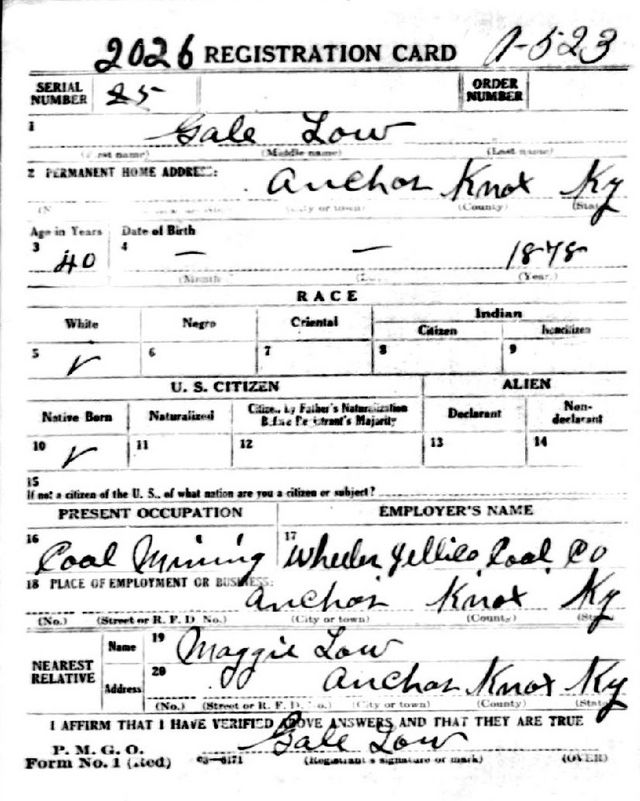 2026 REGISTRATION CARD 1-523
SERIAL NUMBER 25 ORDER NUMBER
1 Gale Low
(First name) (Middle name) (Last name)
2 PERMANENT HOME ADDRESS: Anchor Knox Ky
(City or town) (County) (State)
Age in Years Date of Birth
3 40 4 — — 1878
(Month) (Year)
RACE
White Negro Oriental Indian
Citizen Noncitizen
5 ✓ 6 7 8 9
U. S. CITIZEN ALIEN
Native Born Naturalized Citizen by Father's Naturalization Before Registrant's Majority Declarant Non-declarant
10 ✓ 11 12 13 14
15
If not a citizen of the U. S., of what nation are you a citizen or subject?
PRESENT OCCUPATION EMPLOYER'S NAME
16 Coal Mining 17 Wheeler Jellico Coal Co
18 PLACE OF EMPLOYMENT OR BUSINESS:
Anchor Knox Ky
(No.) (Street or R. F. D. No.) (City or town) (County) (State)
NEAREST RELATIVE
Name 19 Maggie Low
Address 20 Anchor Knox Ky
(No.) (Street or R. F. D. No.) (City or town) (County) (State)
I AFFIRM THAT I HAVE VERIFIED ABOVE ANSWERS AND THAT THEY ARE TRUE
P. M. G. O. Gale Low
Form No. 1 (Red) 03—6171 (Registrant's signature or mark) (OVER)